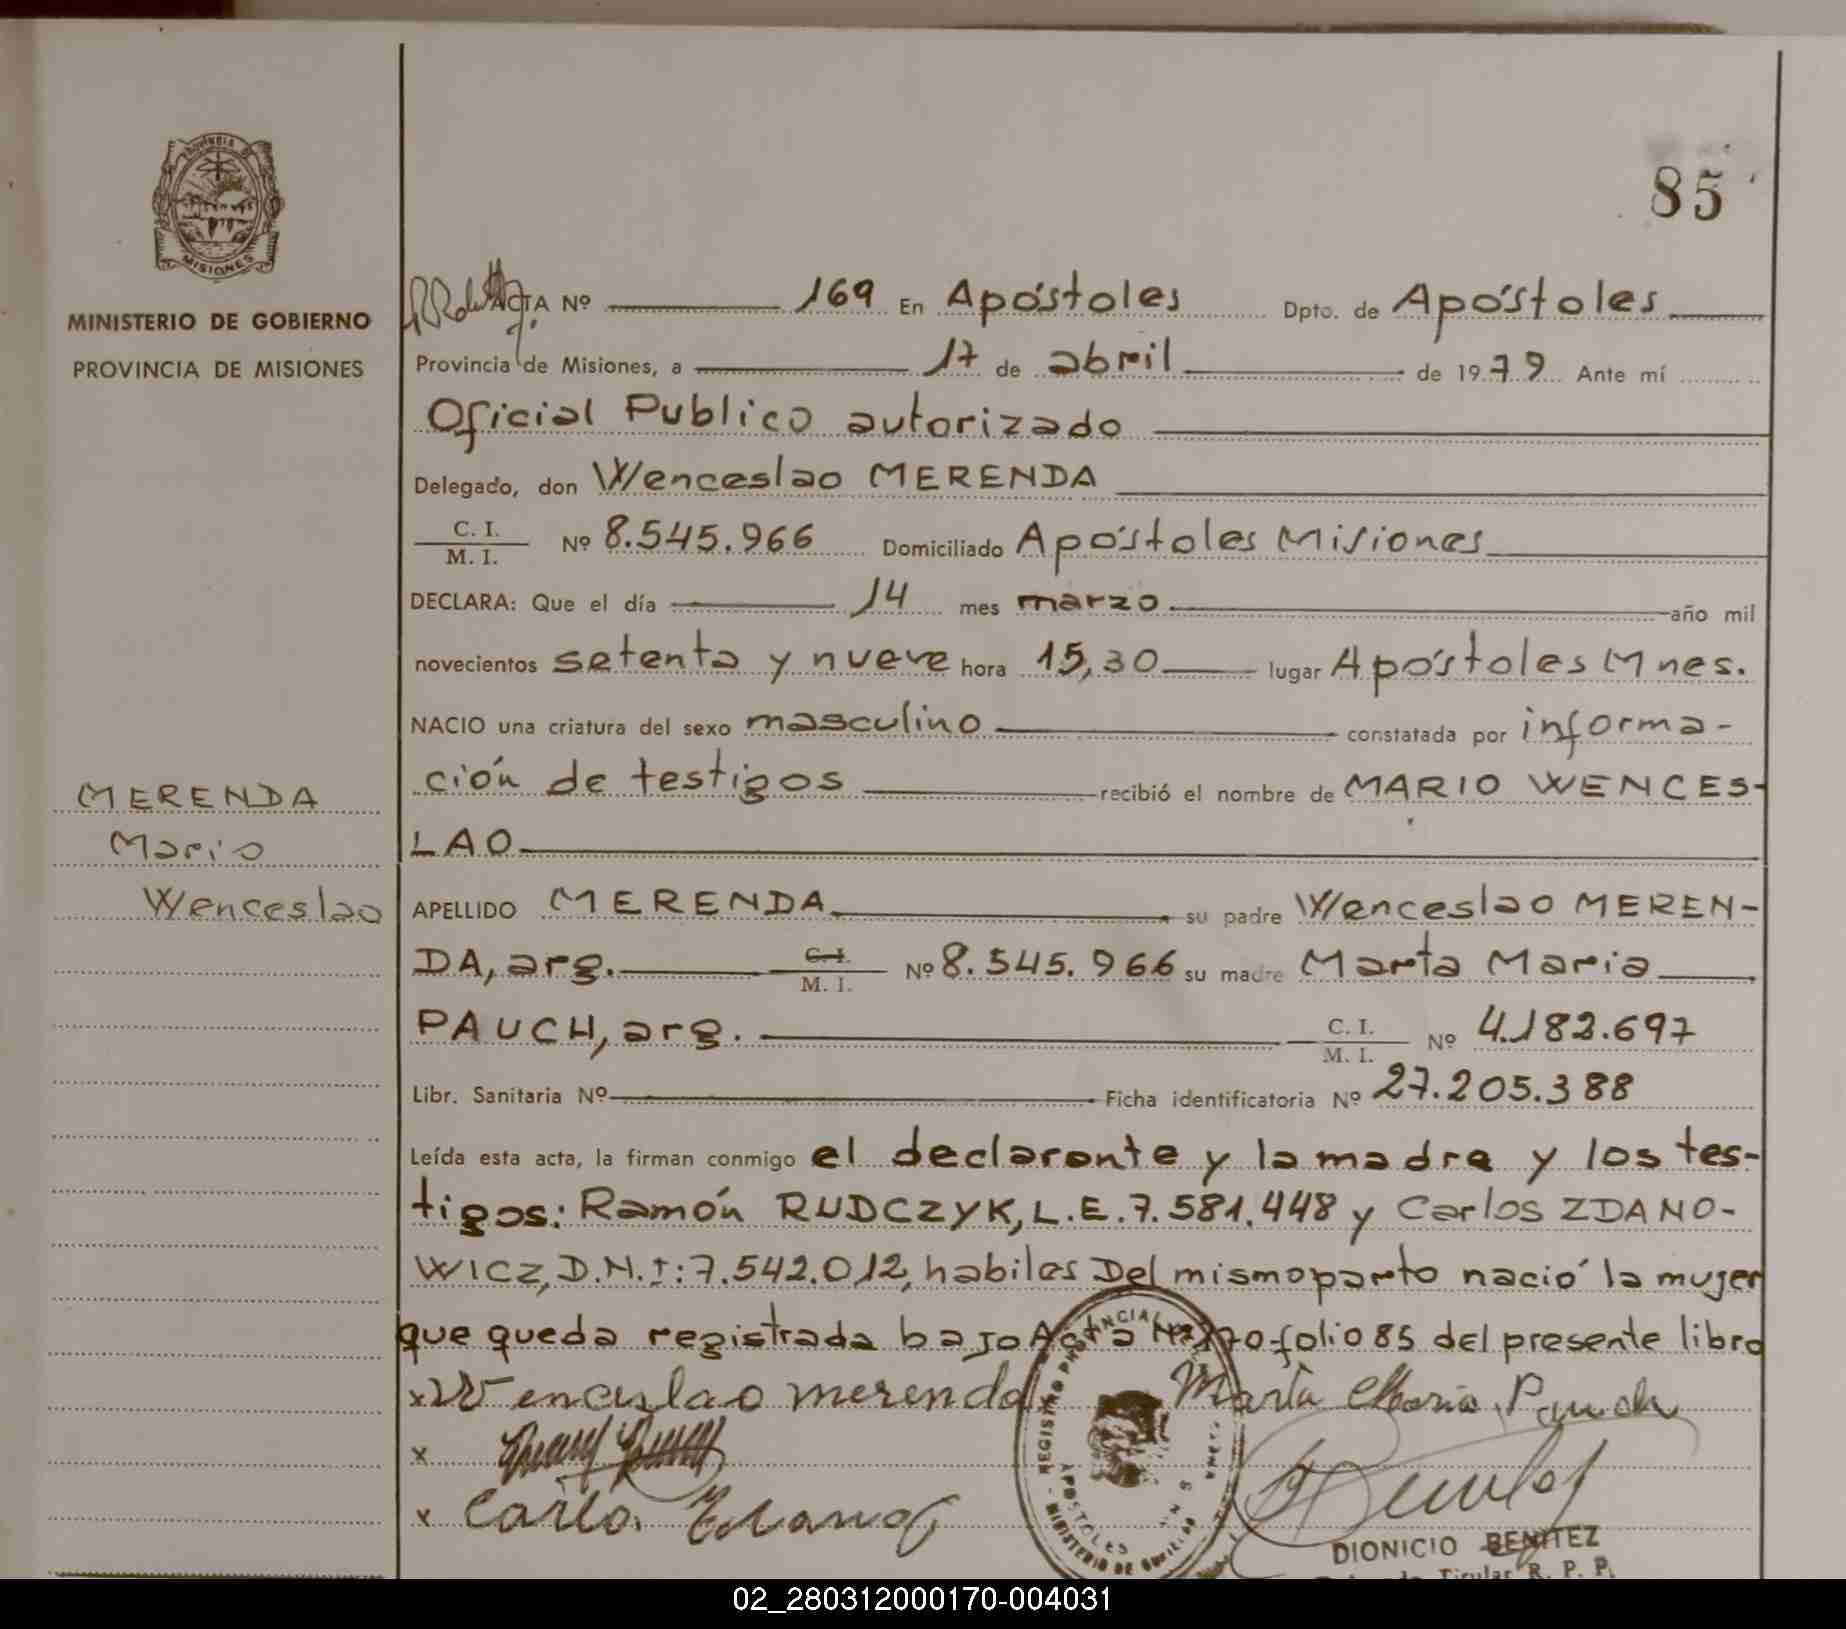 85
PROVINCIA DE
MISIONES
MINISTERIO DE GOBIERNO
PROVINCIA DE MISIONES
MERENDA
Mario
Wenceslao
ACTA Nº 169 En Apóstoles Dpto. de Apóstoles
Provincia de Misiones, a 17 de abril de 1979 Ante mí
Oficial Publico autorizado
Delegado, don Wenceslao MERENDA
C. I.
M. I. Nº 8.545.966 Domiciliado Apóstoles Misiones
DECLARA: Que el día 14 mes marzo año mil
novecientos setenta y nueve hora 15,30 lugar Apóstoles Mnes.
NACIO una criatura del sexo masculino constatada por informa-
ción de testigos recibió el nombre de MARIO WENCES-
LAO
APELLIDO MERENDA su padre Wenceslao MEREN-
DA, arg. C.I. M. I. Nº 8.545.966 su madre Marta Maria
PAUCH, arg. C. I. M. I. Nº 4.182.697
Libr. Sanitaria Nº Ficha identificatoria Nº 27.205.388
Leída esta acta, la firman conmigo el declarante y la madre y los tes-
tigos: Ramón RUDCZYK, L.E. 7.581.448 y Carlos ZDANO-
WICZ, D.N.I: 7.542.012, habiles Del mismo parto nació la mujer
que queda registrada bajo Acta Nº 170 folio 85 del presente libro
x Wenceslao merenda Marta Maria Pauch
x
x Carlos
REGISTRO PROVINCIAL
APOSTOLES
MINISTERIO DE
DIONICIO BENITEZ
Titular R. P. P.
02_280312000170-004031